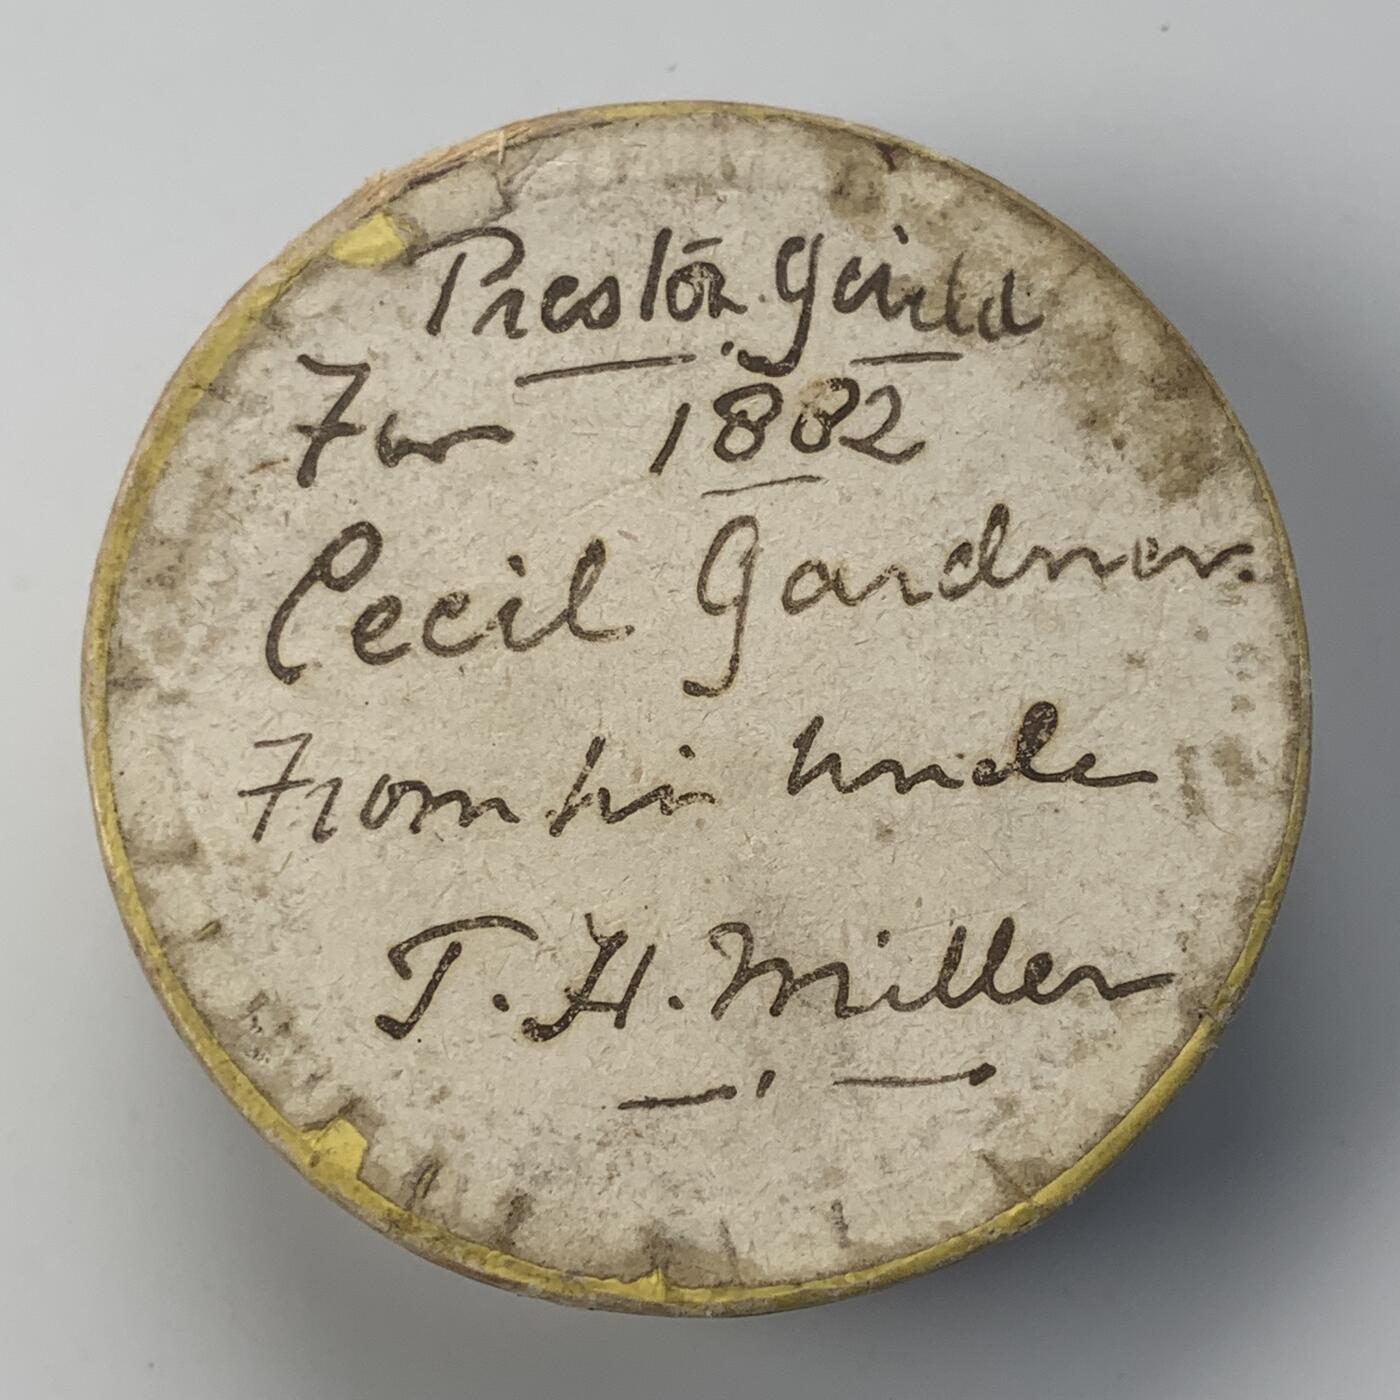 Preston Guild
For 1882
Cecil Gardner.
From his Uncle
T. H. Miller